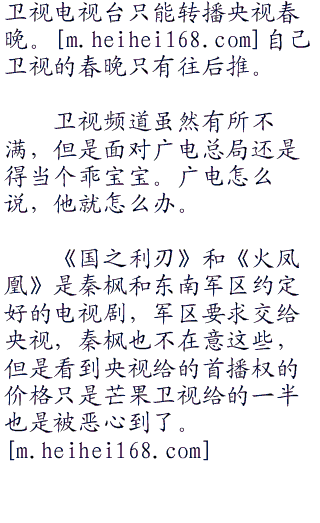 卫视电视台只能转播央视春
晚。[m.heihei168.com]自己
卫视的春晚只有往后推。
卫视频道虽然有所不
满，但是面对广电总局还是
得当个乖宝宝。广电怎么
说，他就怎么办。
《国之利刃》和《火凤
凰》是秦枫和东南军区约定
好的电视剧，军区要求交给
央视，秦枫也不在意这些，
但是看到央视给的首播权的
价格只是芒果卫视给的一半
也是被恶心到了。
[m.heihei168.com]